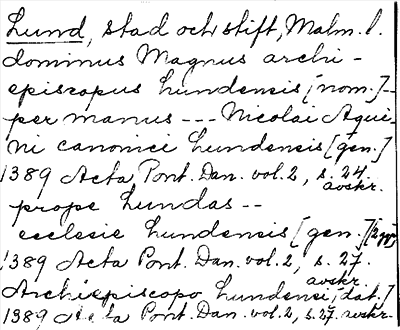 Lund, stad och stift, Malm. l.
dominus Magnus archi-
episcopus Lundensis [nom.] --
per manus --- Nicolai Aqui-
ni canonici Lundensis [gen.]
1389 Acta Pont. Dan. vol. 2, s. 24.
avskr.
prope Lundas --
ecclesie Lundensis [gen.]
1389 Acta Pont. Dan. vol. 2, s. 27.
avskr.
Archiepiscopo Lundensi, dat.]
1389 Acta Pont. Dan. vol. 2, s. 27. avskr.